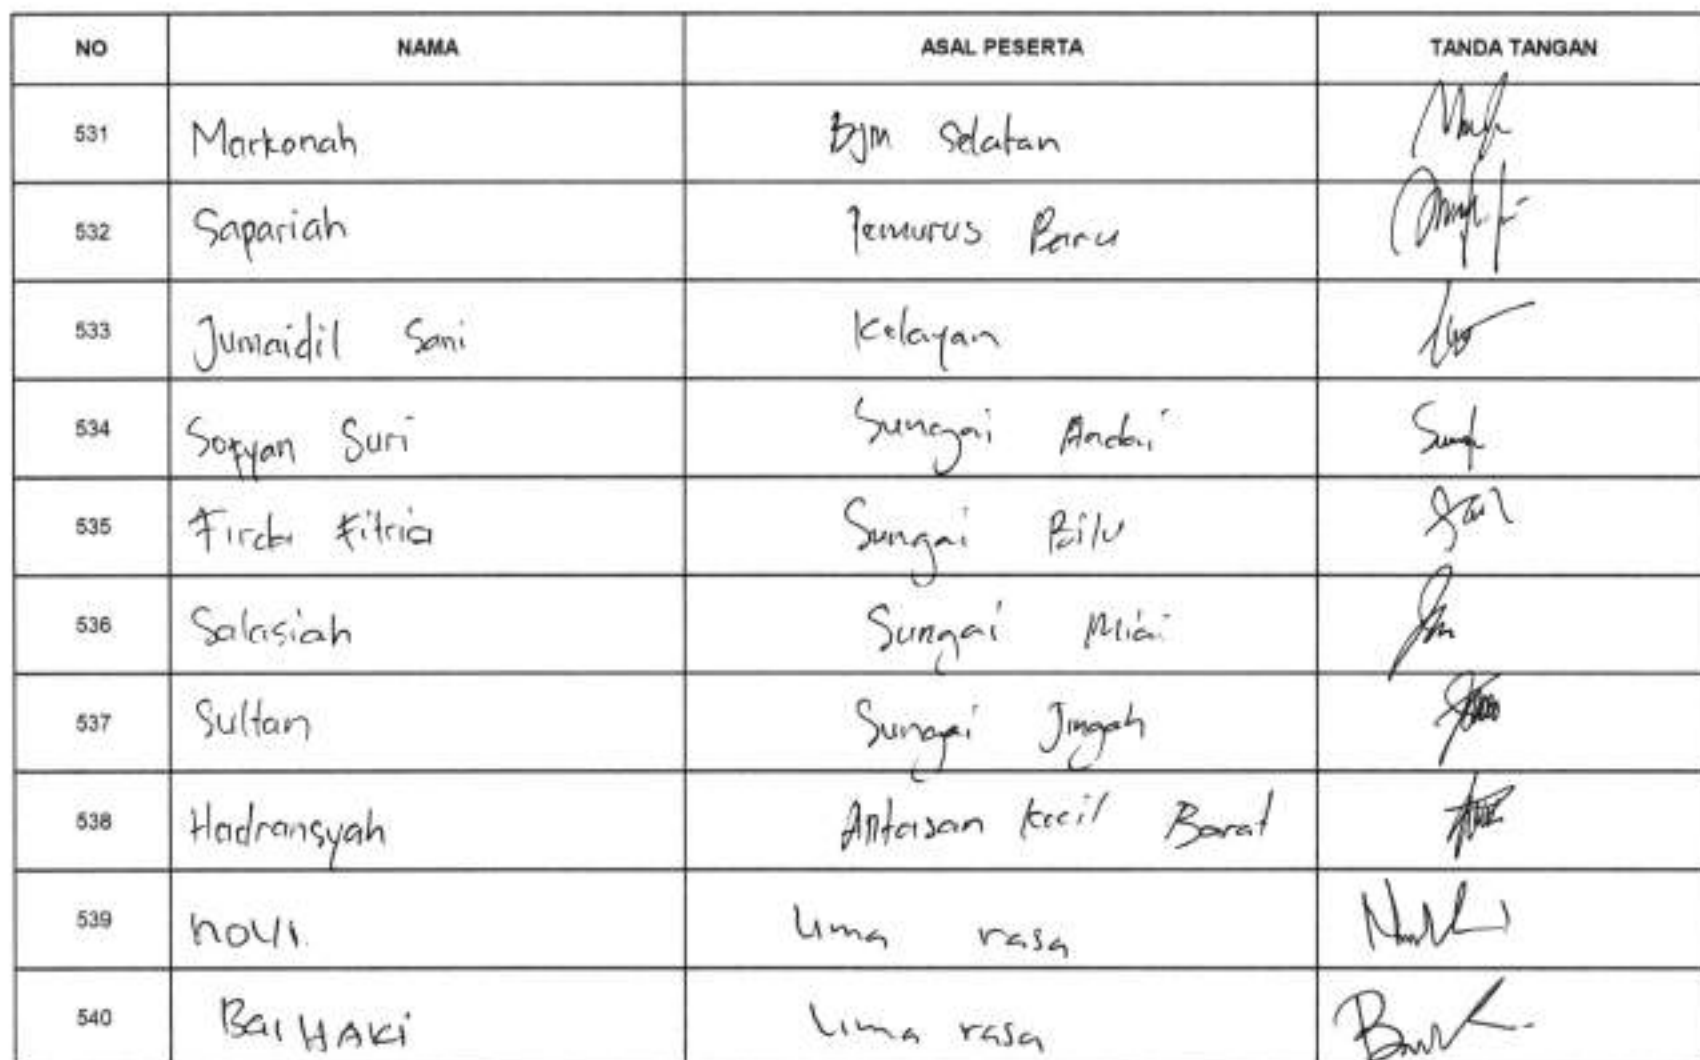 NO NAMA ASAL PESERTA TANDA TANGAN
531 Markonah Bjm Selatan
532 Sapariah Pemurus Baru
533 Jumaidil Sani Kelayan
534 Sofyan Suri Sungai Andai
535 Firda Fitria Sungai Bilu
536 Salasiah Sungai Miai
537 Sultan Sungai Jingah
538 Hadransyah Antasan kecil Barat
539 novi. Lima rasa
540 BaiHAKi Lima rasa